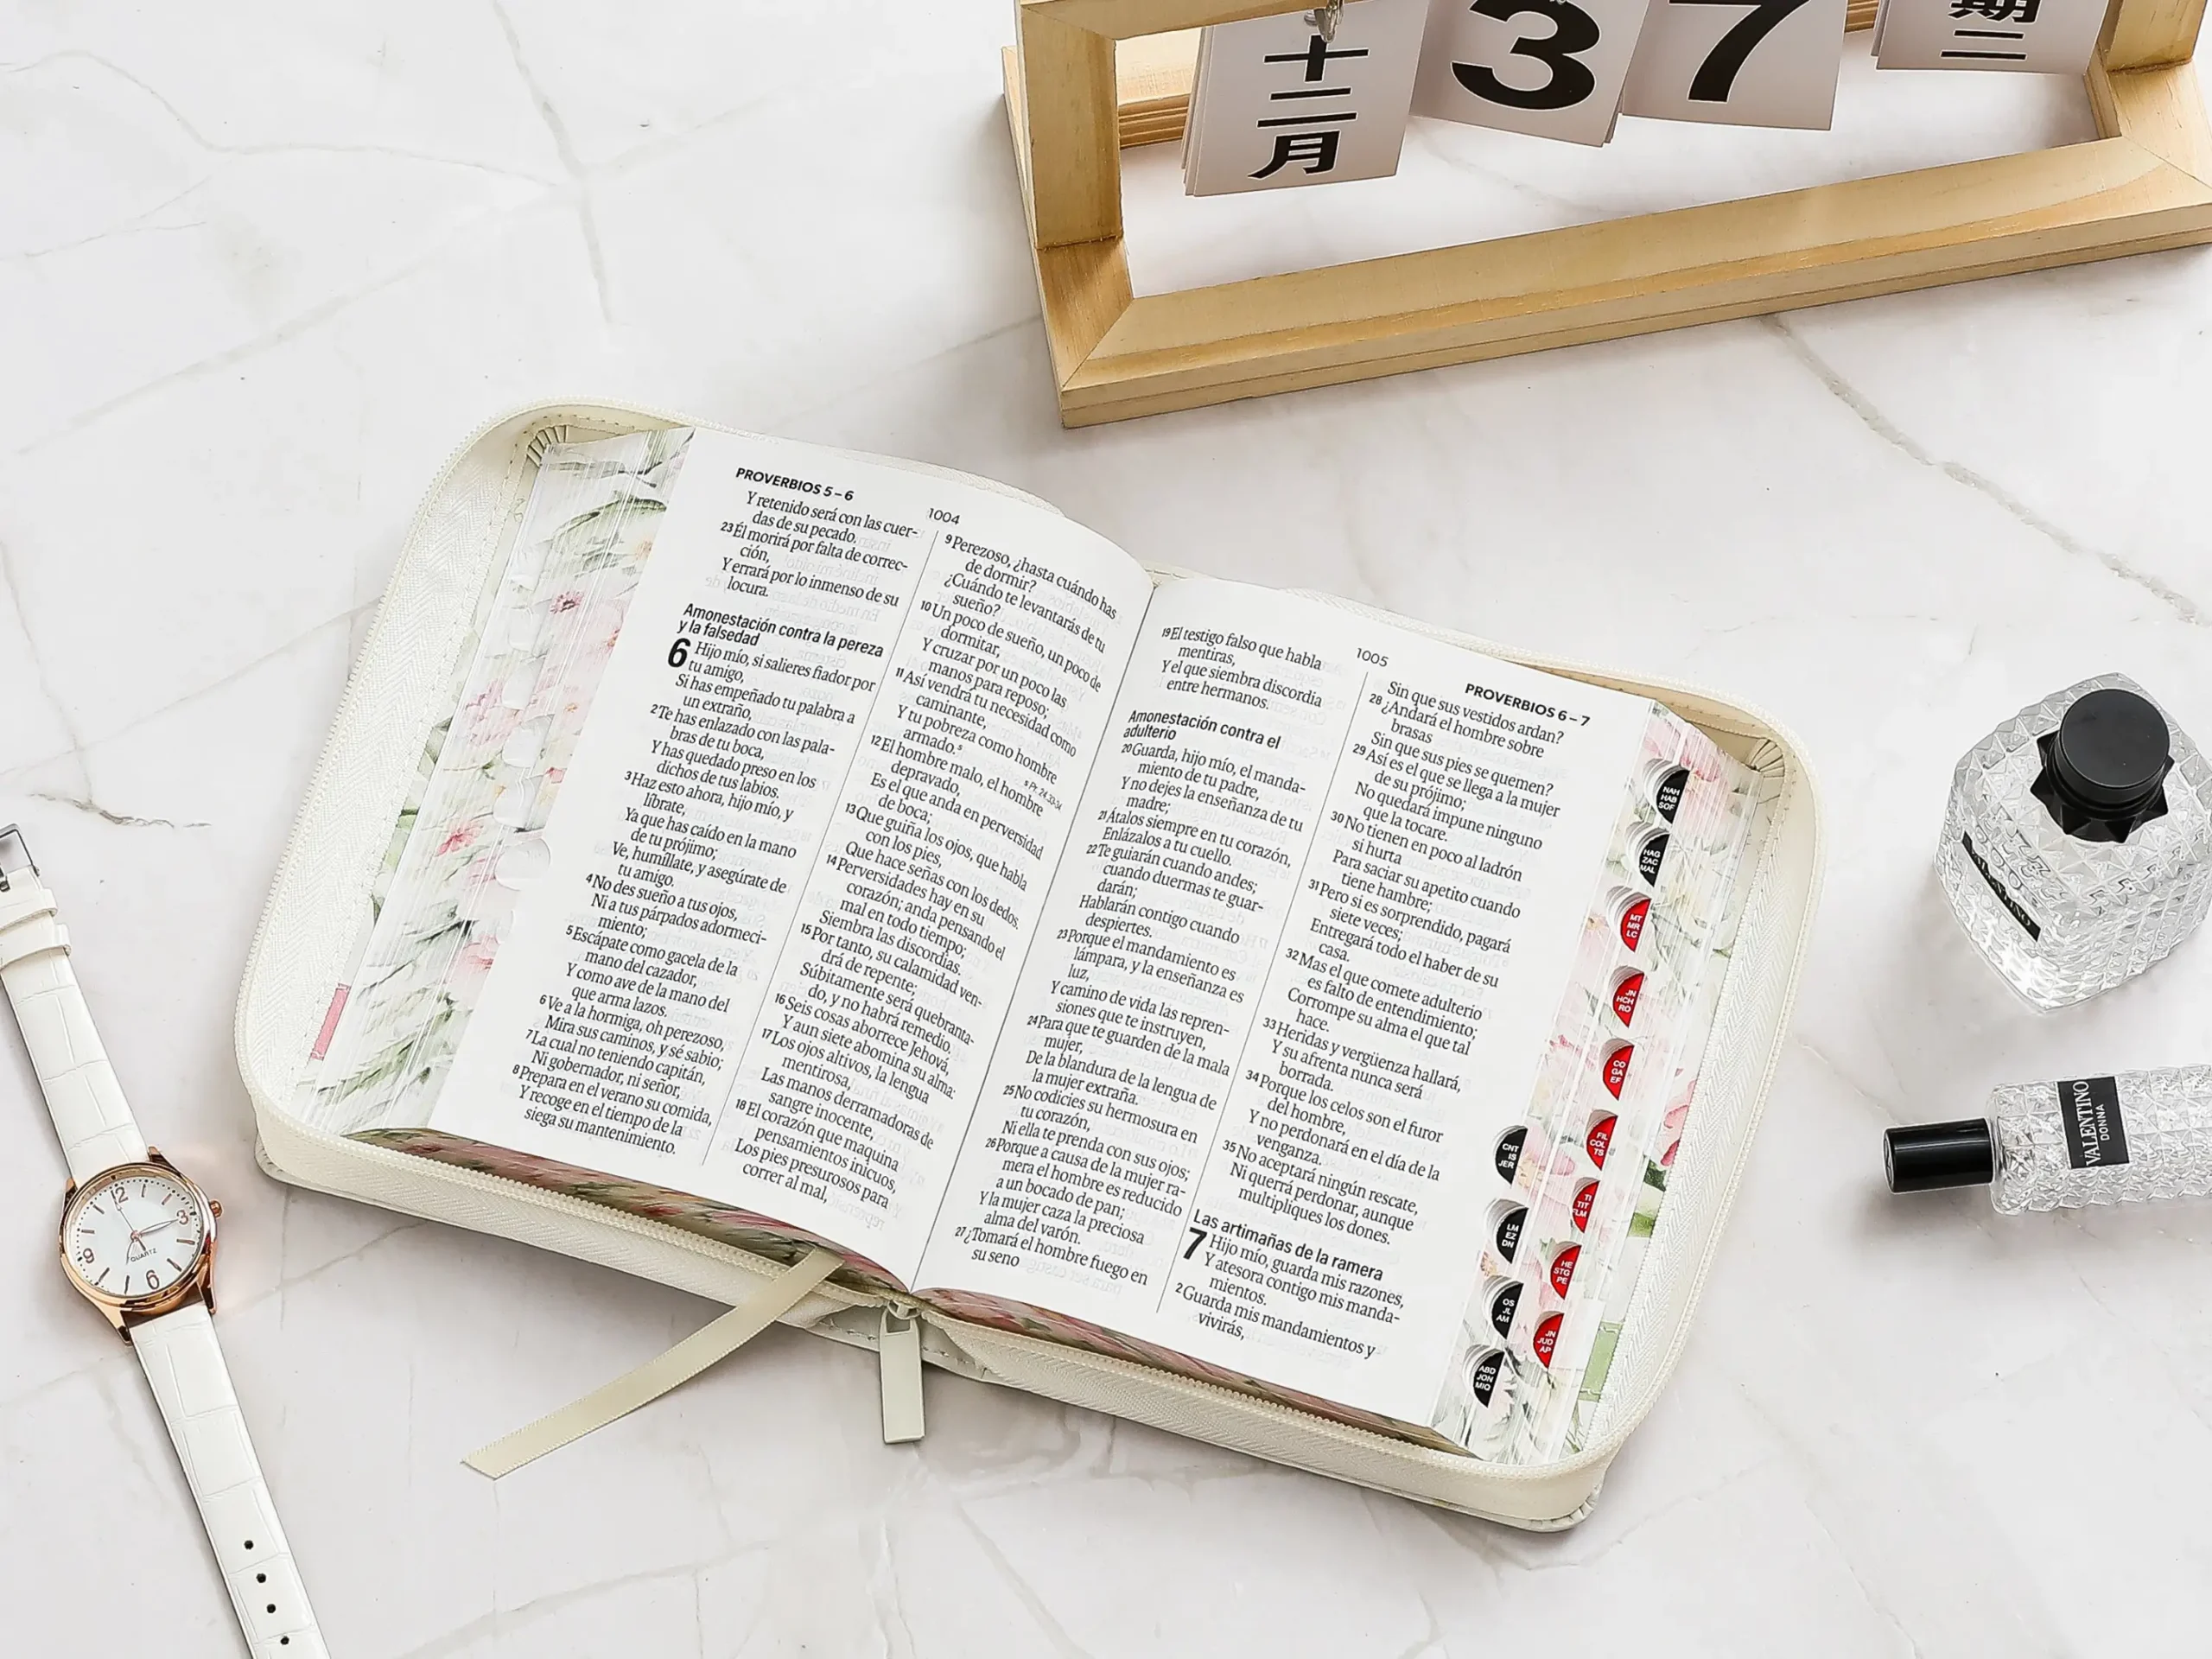 十
二
月
3
7
期
二
PROVERBIOS 5–6
1004
Y retenido será con las cuer-
das de su pecado.
23 Él morirá por falta de correc-
ción,
Y errará por lo inmenso de su
locura.
Amonestación contra la pereza
y la falsedad
6 Hijo mío, si salieres fiador por
tu amigo,
Si has empeñado tu palabra a
un extraño,
2 Te has enlazado con las pala-
bras de tu boca,
Y has quedado preso en los
dichos de tus labios.
3 Haz esto ahora, hijo mío, y
líbrate,
Ya que has caído en la mano
de tu prójimo;
Ve, humíllate, y asegúrate de
tu amigo.
4 No des sueño a tus ojos,
Ni a tus párpados adormeci-
miento;
5 Escápate como gacela de la
mano del cazador,
Y como ave de la mano del
que arma lazos.
6 Ve a la hormiga, oh perezoso,
Mira sus caminos, y sé sabio;
7 La cual no teniendo capitán,
Ni gobernador, ni señor,
8 Prepara en el verano su comida,
Y recoge en el tiempo de la
siega su mantenimiento.
9 Perezoso, ¿hasta cuándo has
de dormir?
¿Cuándo te levantarás de tu
sueño?
10 Un poco de sueño, un poco de
dormitar,
Y cruzar por un poco las
manos para reposo;
11 Así vendrá tu necesidad como
caminante,
Y tu pobreza como hombre
armado.
12 El hombre malo, el hombre
depravado,
Es el que anda en perversidad
de boca;
13 Que guiña los ojos, que habla
con los pies,
Que hace señas con los dedos.
14 Perversidades hay en su
corazón; anda pensando el
mal en todo tiempo;
Siembra las discordias.
15 Por tanto, su calamidad ven-
drá de repente;
Súbitamente será quebranta-
do, y no habrá remedio.
16 Seis cosas aborrece Jehová,
Y aun siete abomina su alma:
17 Los ojos altivos, la lengua
mentirosa,
Las manos derramadoras de
sangre inocente,
18 El corazón que maquina
pensamientos inicuos,
Los pies presurosos para
correr al mal,
1005
PROVERBIOS 6–7
19 El testigo falso que habla
mentiras,
Y el que siembra discordia
entre hermanos.
Amonestación contra el
adulterio
20 Guarda, hijo mío, el manda-
miento de tu padre,
Y no dejes la enseñanza de tu
madre;
21 Átalos siempre en tu corazón,
Enlázalos a tu cuello.
22 Te guiarán cuando andes;
cuando duermas te guar-
darán;
Hablarán contigo cuando
despiertes.
23 Porque el mandamiento es
lámpara, y la enseñanza es
luz,
Y camino de vida las repren-
siones que te instruyen,
24 Para que te guarden de la mala
mujer,
De la blandura de la lengua de
la mujer extraña.
25 No codicies su hermosura en
tu corazón,
Ni ella te prenda con sus ojos;
26 Porque a causa de la mujer ra-
mera el hombre es reducido
a un bocado de pan;
Y la mujer caza la preciosa
alma del varón.
27 ¿Tomará el hombre fuego en
su seno
Sin que sus vestidos ardan?
28 ¿Andará el hombre sobre
brasas
Sin que sus pies se quemen?
29 Así es el que se llega a la mujer
de su prójimo;
No quedará impune ninguno
que la tocare.
30 No tienen en poco al ladrón
si hurta
Para saciar su apetito cuando
tiene hambre;
31 Pero si es sorprendido, pagará
siete veces;
Entregará todo el haber de su
casa.
32 Mas el que comete adulterio
es falto de entendimiento;
Corrompe su alma el que tal
hace.
33 Heridas y vergüenza hallará,
Y su afrenta nunca será
borrada.
34 Porque los celos son el furor
del hombre,
Y no perdonará en el día de la
venganza.
35 No aceptará ningún rescate,
Ni querrá perdonar, aunque
multipliques los dones.
Las artimañas de la ramera
7 Hijo mío, guarda mis razones,
Y atesora contigo mis manda-
mientos.
2 Guarda mis mandamientos y
vivirás,
NAH
HAB
SOF
HAG
ZAC
MAL
MT
MR
LC
JN
HCH
RO
CO
GA
EF
FIL
COL
TS
TI
TIT
FLM
HE
STG
PE
JN
JUD
AP
CNT
IS
JER
LM
EZ
DN
OS
JL
AM
ABD
JON
MIQ
VALENTINO
DONNA
12
3
6
9
QUARTZ